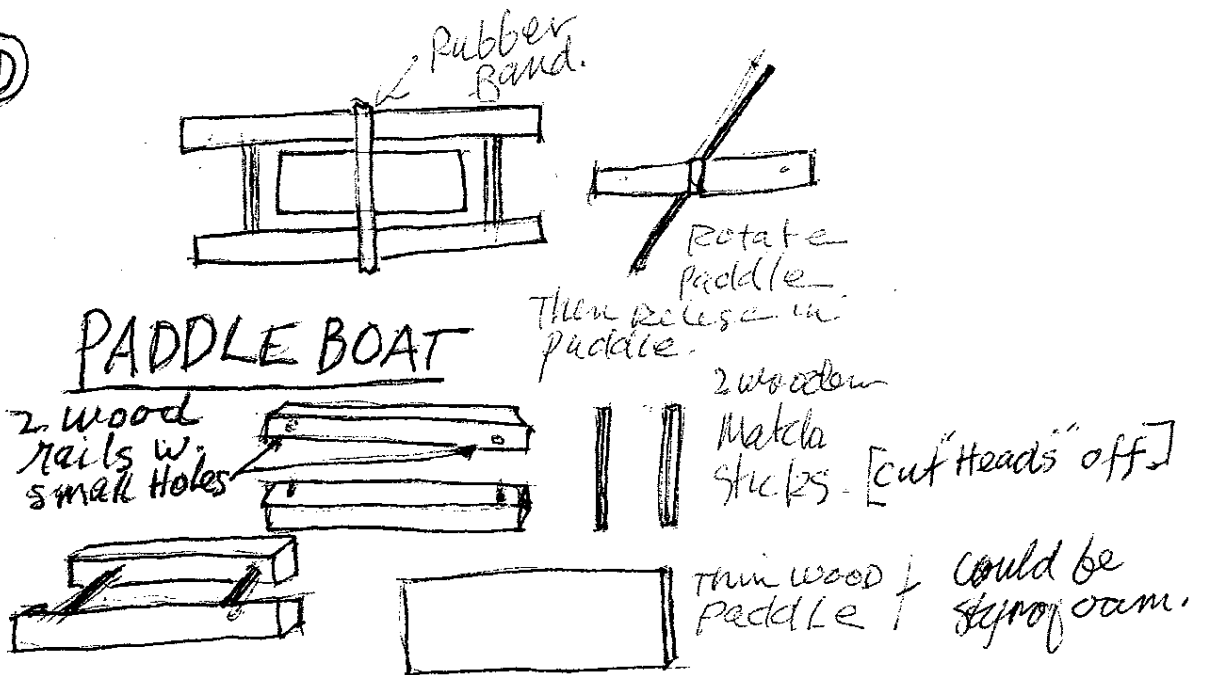 Rubber
Band.
Rotate
Paddle
Then Release in
puddle.
PADDLE BOAT
2 wood
rails w.
small Holes
2 wooden
Match
Sticks. [cut "Heads" off.]
Thin WOOD
PaddLe
could be
styrofoam.